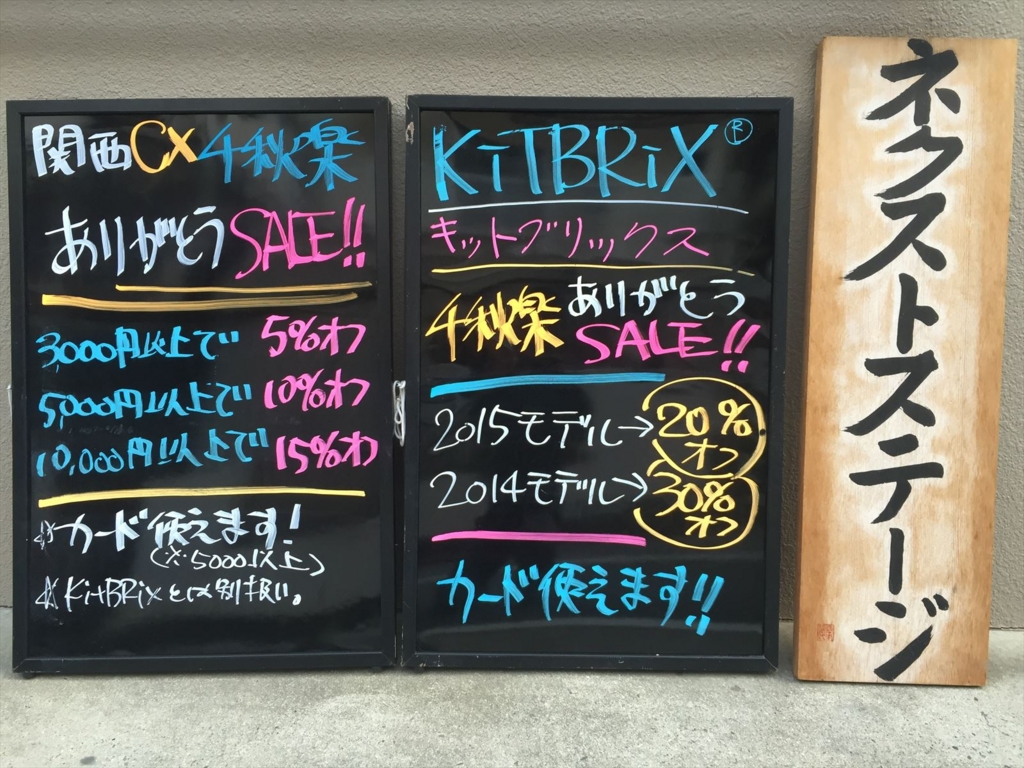 関西CX 千秋楽
ありがとう SALE!!
3,000円以上で 5%オフ
5,000円以上で 10%オフ
10,000円以上で 15%オフ
☆カード使えます!
(※5000以上)
☆KitBRixとは別扱い。
KiTBRiX®
キットブリックス
千秋楽 ありがとう
SALE!!
2015モデル→20%オフ
2014モデル→30%オフ
カード使えます!!
ネクストステージ